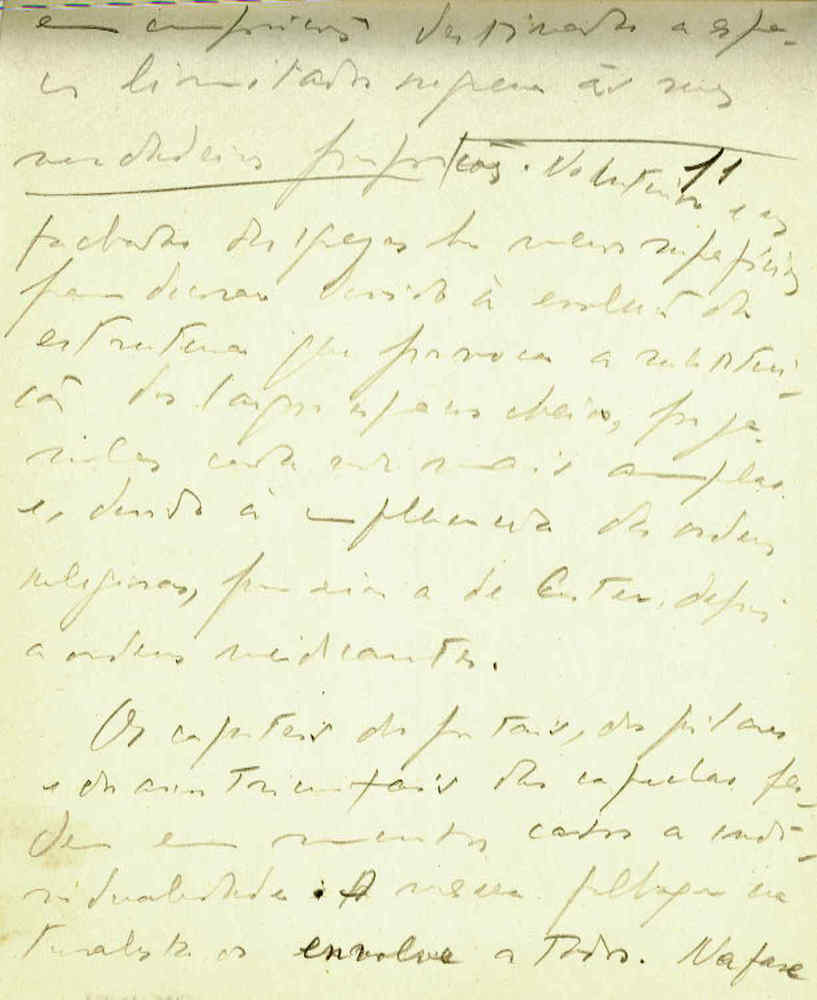 em composições destinadas a espa-
ços limitados supera às suas
verdadeiras proporções. No interior e nas
11
fachadas das igrejas há menos superfícies
para decorar devido à evolução da
estrutura que provoca a substitui-
ção dos largos espaços cheios, por ja-
nelas cada vez mais amplas
e, devido à influência das ordens
religiosas, primeiro a de Cister, depois
a ordens mendicantes.
Os capiteis dos portais, dos pilares
e das das capelas per-
dem em muitos casos a indi-
vidualidade. A mesma folhagem na
turalista os envolve a todos. Na fase